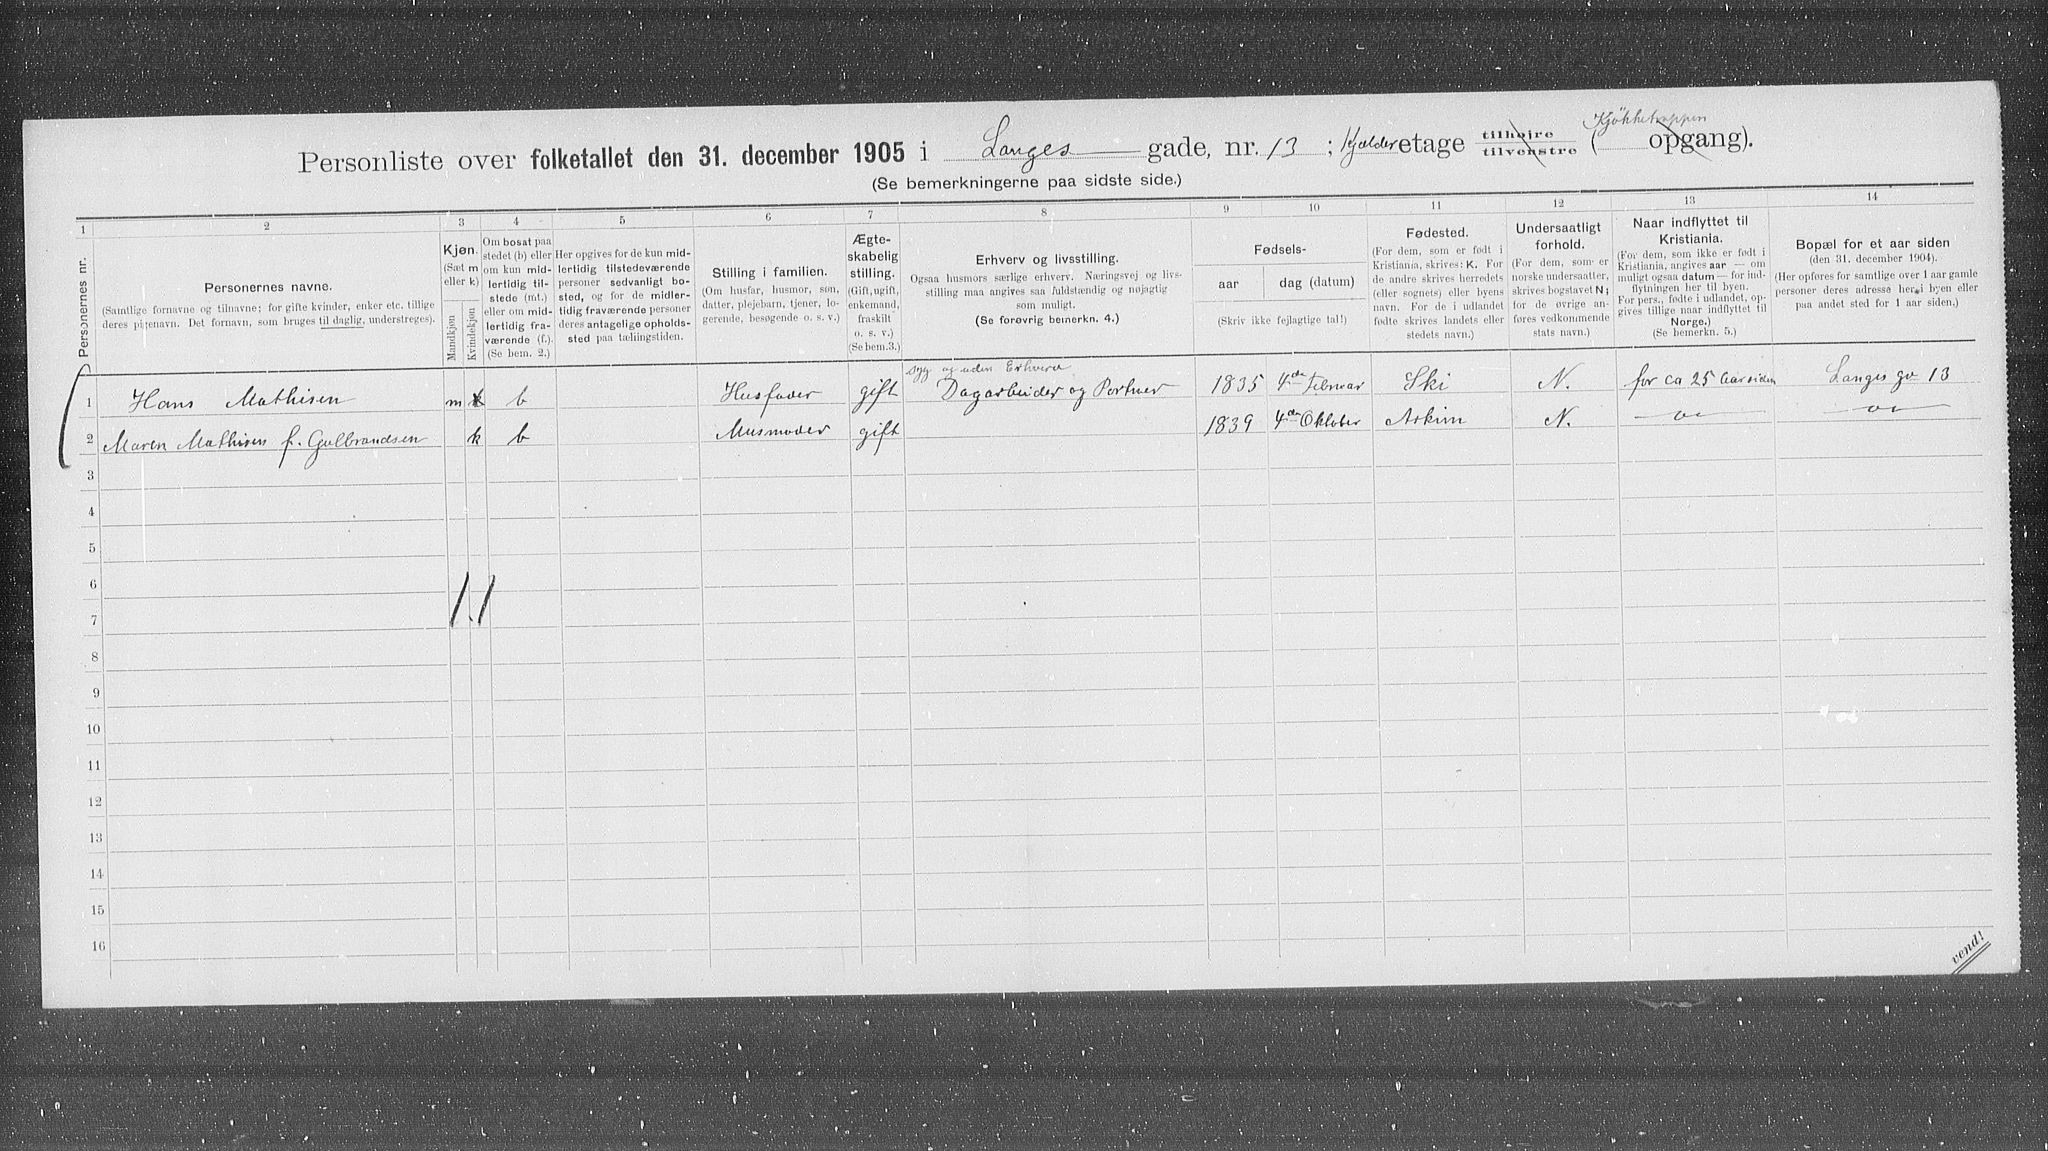 Personliste over folketallet den 31. december 1905 i Langes gade, nr. 13 ; Kjælder etage tilhøjre tilvenstre (Kjøkketrappen opgang).
(Se bemerkningerne paa sidste side.)
1 2 3 4 5 6 7 8 9 10 11 12 13 14
Personernes nr.
Personernes navne.
(Samtlige fornavne og tilnavne; for gifte kvinder, enker etc. tillige
deres pigenavn. Det fornavn, som bruges til daglig, understreges).
Kjøn.
(Sæt m
eller k)
Mandkjøn
Kvindekjøn
Om bosat paa
stedet (b) eller
om kun mid-
lertidig til-
stede (mt.)
eller om mid-
lertidig fra-
værende (f.).
(Se bem. 2.)
Her opgives for de kun mid-
lertidig tilstedeværende
personer sedvanligt bo-
sted, og for de midler-
tidig fraværende personer
deres antagelige opholds-
sted paa tællingstiden.
Stilling i familien.
(Om husfar, husmor, søn,
datter, plejebarn, tjener, lo-
gerende, besøgende o. s. v.)
Ægte-
skabelig
stilling.
(Gift, ugift,
enkemand,
fraskilt
o. s. v.)
(Se bem.3.)
Erhverv og livsstilling.
Ogsaa husmors særlige erhverv. Næringsvej og livs-
stilling maa angives saa fuldstændig og nøjagtig
som muligt.
(Se forøvrig bemerkn. 4.)
Fødsels-
aar
dag (datum)
(Skriv ikke fejlagtige tal!)
Fødested.
(For dem, som er født i
Kristiania, skrives: K. For
de andre skrives herredets
(eller sognets) eller byens
navn. For de i udlandet
fødte skrives landets eller
stedets navn.)
Undersaatligt
forhold.
(For dem, som er
norske undersaatter,
skrives bogstavet N;
for de øvrige an-
føres vedkommende
stats navn.)
Naar indflyttet til
Kristiania.
(For dem, som ikke er født i
Kristiania, angives aar — om
muligt ogsaa datum — for ind-
flytningen her til byen.
For pers., fødte i udlandet, op-
gives tillige naar indflyttet til
Norge.)
(Se bemerkn. 5.)
Bopæl for et aar siden
(den 31. december 1904).
(Her opføres for samtlige over 1 aar gamle
personer deres adresse her i byen eller
paa andet sted for 1 aar siden.)
syg og uden Erhverv
1 Hans Mathisen m k b Husfader gift Dagarbeider og Portner 1835 4de Februar Ski N. for ca 25 Aar siden Langes ga 13
2 Maren Mathisen f. Gulbrandsen k b Musmoder gift 1839 4de Oktober Askim N.
3
4
5
6
7
8
9
10
11
12
13
14
15
16
vend!